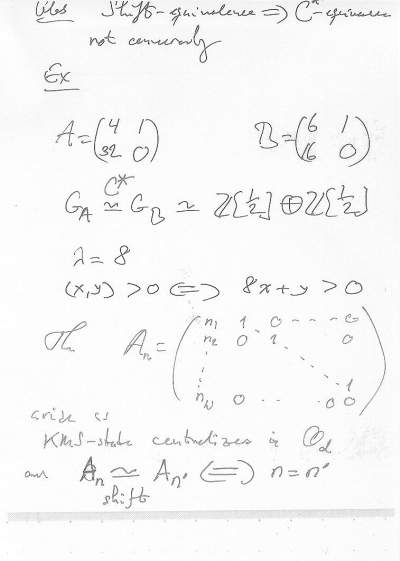 Shift-equivalence ⟹ C*-equivalence
not conversely
Ex
A = (4 1
32 0)
B = (6 1
16 0)
G_A ≃^{C*} G_B ≃ ℤ[½] ⊕ ℤ[½]
λ = 8
(x,y) > 0 ⟺ 8x + y > 0
Th A_n = (n_1 1 0 - - - 0
n_2 0 1 0
⋮ 1
n_N 0 . . . . 0 0)
arise as
KMS-state centralizers in O_d
and A_n ≃_{shift} A_{n'} ⟺ n = n'